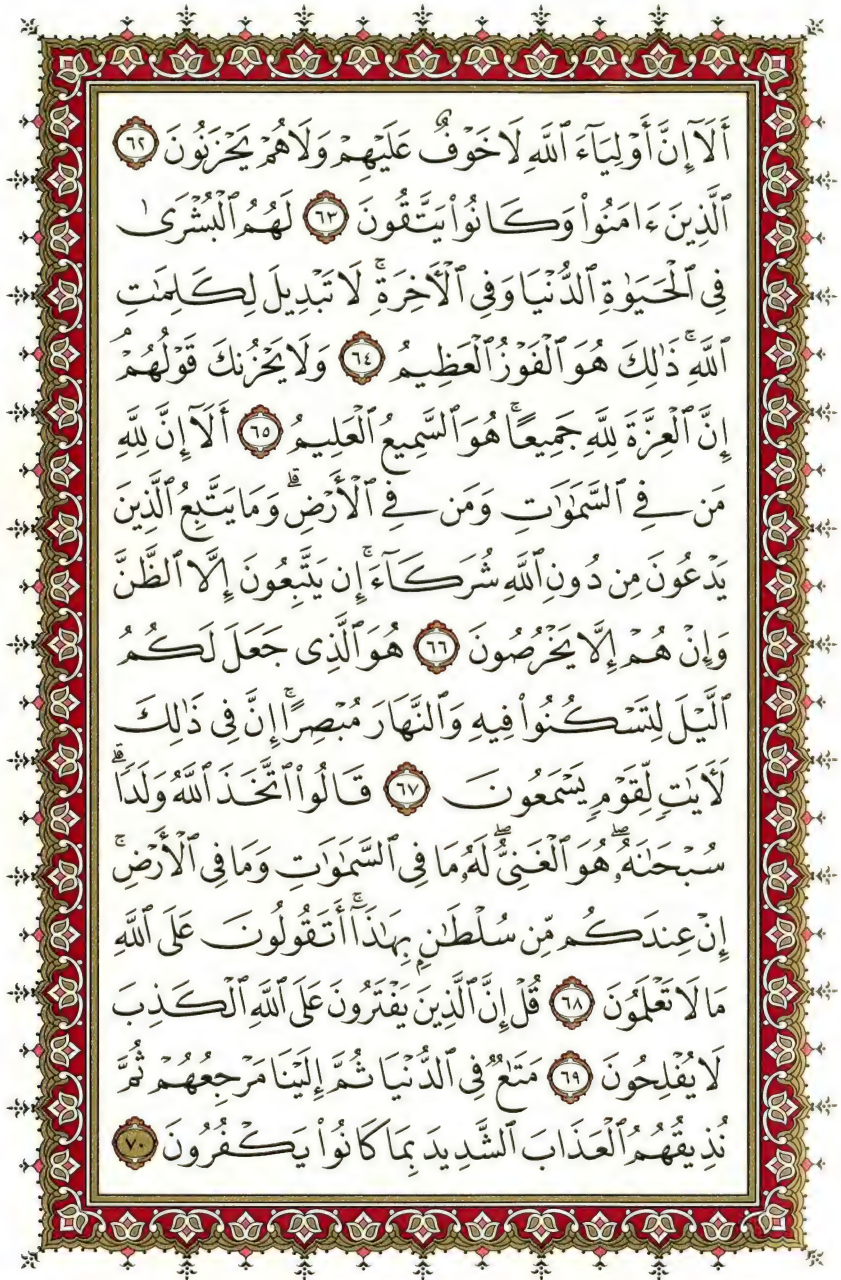 أَلَآ إِنَّ أَوْلِيَآءَ ٱللَّهِ لَا خَوْفٌ عَلَيْهِمْ وَلَا هُمْ يَحْزَنُونَ ٦٢
ٱلَّذِينَ ءَامَنُوا۟ وَكَانُوا۟ يَتَّقُونَ ٦٣ لَهُمُ ٱلْبُشْرَىٰ
فِى ٱلْحَيَوٰةِ ٱلدُّنْيَا وَفِى ٱلْأَخِرَةِ ۚ لَا تَبْدِيلَ لِكَلِمَٰتِ
ٱللَّهِ ۚ ذَٰلِكَ هُوَ ٱلْفَوْزُ ٱلْعَظِيمُ ٦٤ وَلَا يَحْزُنكَ قَوْلُهُمْ ۘ
إِنَّ ٱلْعِزَّةَ لِلَّهِ جَمِيعًا ۚ هُوَ ٱلسَّمِيعُ ٱلْعَلِيمُ ٦٥ أَلَآ إِنَّ لِلَّهِ
مَن فِى ٱلسَّمَٰوَٰتِ وَمَن فِى ٱلْأَرْضِ ۗ وَمَا يَتَّبِعُ ٱلَّذِينَ
يَدْعُونَ مِن دُونِ ٱللَّهِ شُرَكَآءَ ۚ إِن يَتَّبِعُونَ إِلَّا ٱلظَّنَّ
وَإِنْ هُمْ إِلَّا يَخْرُصُونَ ٦٦ هُوَ ٱلَّذِى جَعَلَ لَكُمُ
ٱلَّيْلَ لِتَسْكُنُوا۟ فِيهِ وَٱلنَّهَارَ مُبْصِرًا ۚ إِنَّ فِى ذَٰلِكَ
لَأَيَٰتٍ لِّقَوْمٍ يَسْمَعُونَ ٦٧ قَالُوا۟ ٱتَّخَذَ ٱللَّهُ وَلَدًا ۗ
سُبْحَٰنَهُۥ ۖ هُوَ ٱلْغَنِىُّ ۖ لَهُۥ مَا فِى ٱلسَّمَٰوَٰتِ وَمَا فِى ٱلْأَرْضِ ۚ
إِنْ عِندَكُم مِّن سُلْطَٰنٍۭ بِهَٰذَآ ۚ أَتَقُولُونَ عَلَى ٱللَّهِ
مَا لَا تَعْلَمُونَ ٦٨ قُلْ إِنَّ ٱلَّذِينَ يَفْتَرُونَ عَلَى ٱللَّهِ ٱلْكَذِبَ
لَا يُفْلِحُونَ ٦٩ مَتَٰعٌ فِى ٱلدُّنْيَا ثُمَّ إِلَيْنَا مَرْجِعُهُمْ ثُمَّ
نُذِيقُهُمُ ٱلْعَذَابَ ٱلشَّدِيدَ بِمَا كَانُوا۟ يَكْفُرُونَ ٧٠